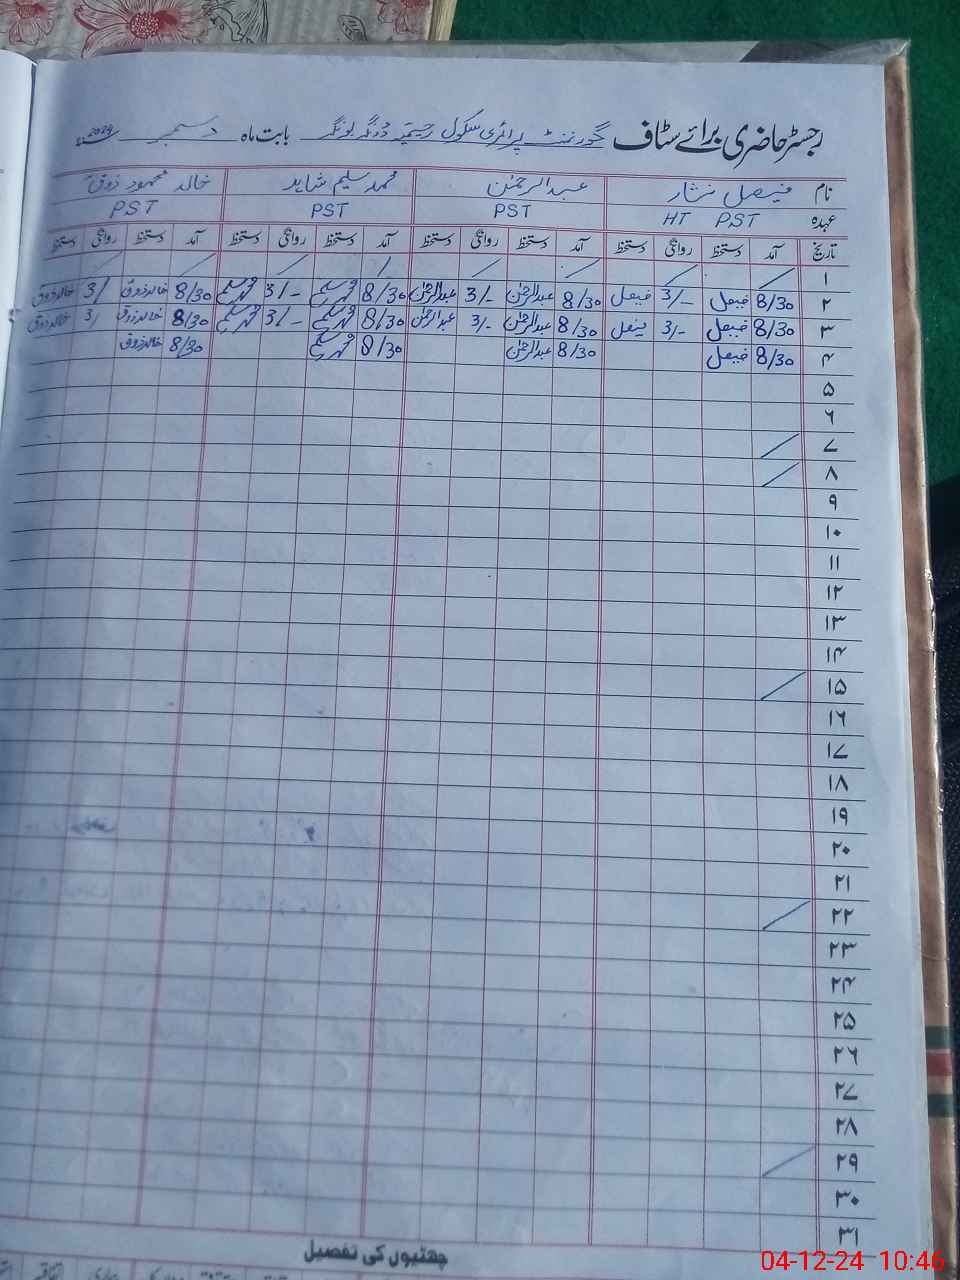 رجسٹر حاضری برائے سٹاف گورنمنٹ پرائمری سکول بابت ماہ دسمبر 2024ء
نام فیصل نثار عبدالرحمٰن محمد سلیم شاہد خالد محمود ذوق
عہدہ HT PST PST PST PST
تاریخ آمد دستخط روانگی دستخط آمد دستخط روانگی دستخط آمد دستخط روانگی دستخط آمد دستخط روانگی دستخط
۱
۲ 8/30 فیصل 3/- فیصل 8/30 عبدالرحمٰن 3/- عبدالرحمٰن 8/30 محمد سلیم 3/- محمد سلیم 8/30 خالد ذوق 3/ خالد ذوق
۳ 8/30 فیصل 3/- فیصل 8/30 عبدالرحمٰن 3/- عبدالرحمٰن 8/30 محمد سلیم 3/- محمد سلیم 8/30 خالد ذوق 3/ خالد ذوق
۴ 8/30 فیصل 8/30 عبدالرحمٰن 8/30 محمد سلیم 8/30 خالد ذوق
۵
۶
۷
۸
۹
۱۰
۱۱
۱۲
۱۳
۱۴
۱۵
۱۶
۱۷
۱۸
۱۹
۲۰
۲۱
۲۲
۲۳
۲۴
۲۵
۲۶
۲۷
۲۸
۲۹
۳۰
۳۱
چھٹیوں کی تفصیل
04-12-24 10:46